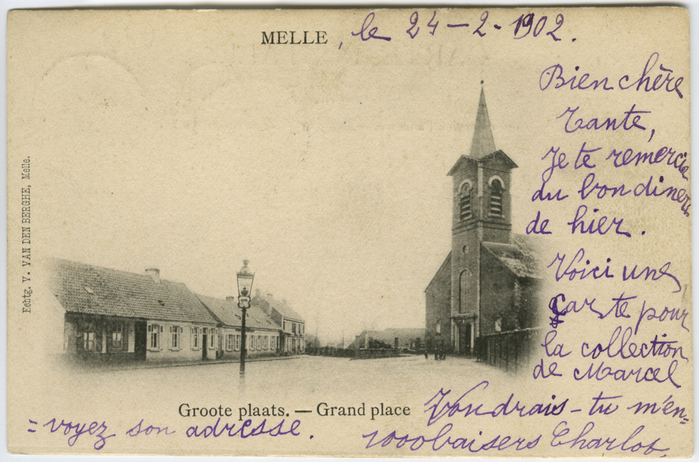 MELLE, le 24-2-1902.
Bien chère
Tante,
Je te remercie
du bon diner
de hier.
Voici une
carte pour
la collection
de Marcel
Voudrais-tu m'en=
=voyez son adresse.
1000 baisers Charlot.
Groote plaats. — Grand place
Echtg. V. VAN DEN BERGHE, Melle.